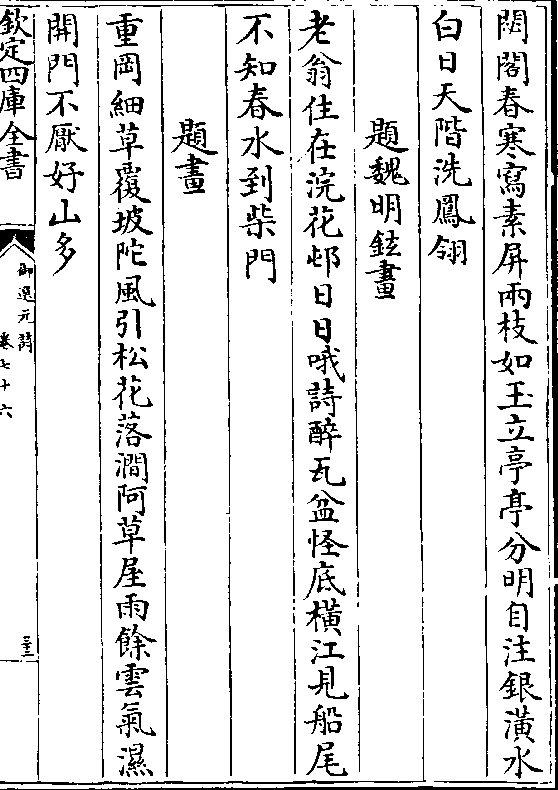 閶閤春寒寫素屏兩枝如玉立亭亭分明自注銀潢水
白日天階洗鳳翎
題魏明鉉畫
老翁住在浣花邨日日哦詩醉瓦盆怪底橫江見船尾
不知春水到柴門
題畫
重岡細草覆坡陀風引松花落澗阿草屋雨餘雲氣濕
開門不厭好山多
欽定四庫全書
御選元詩
卷七十六